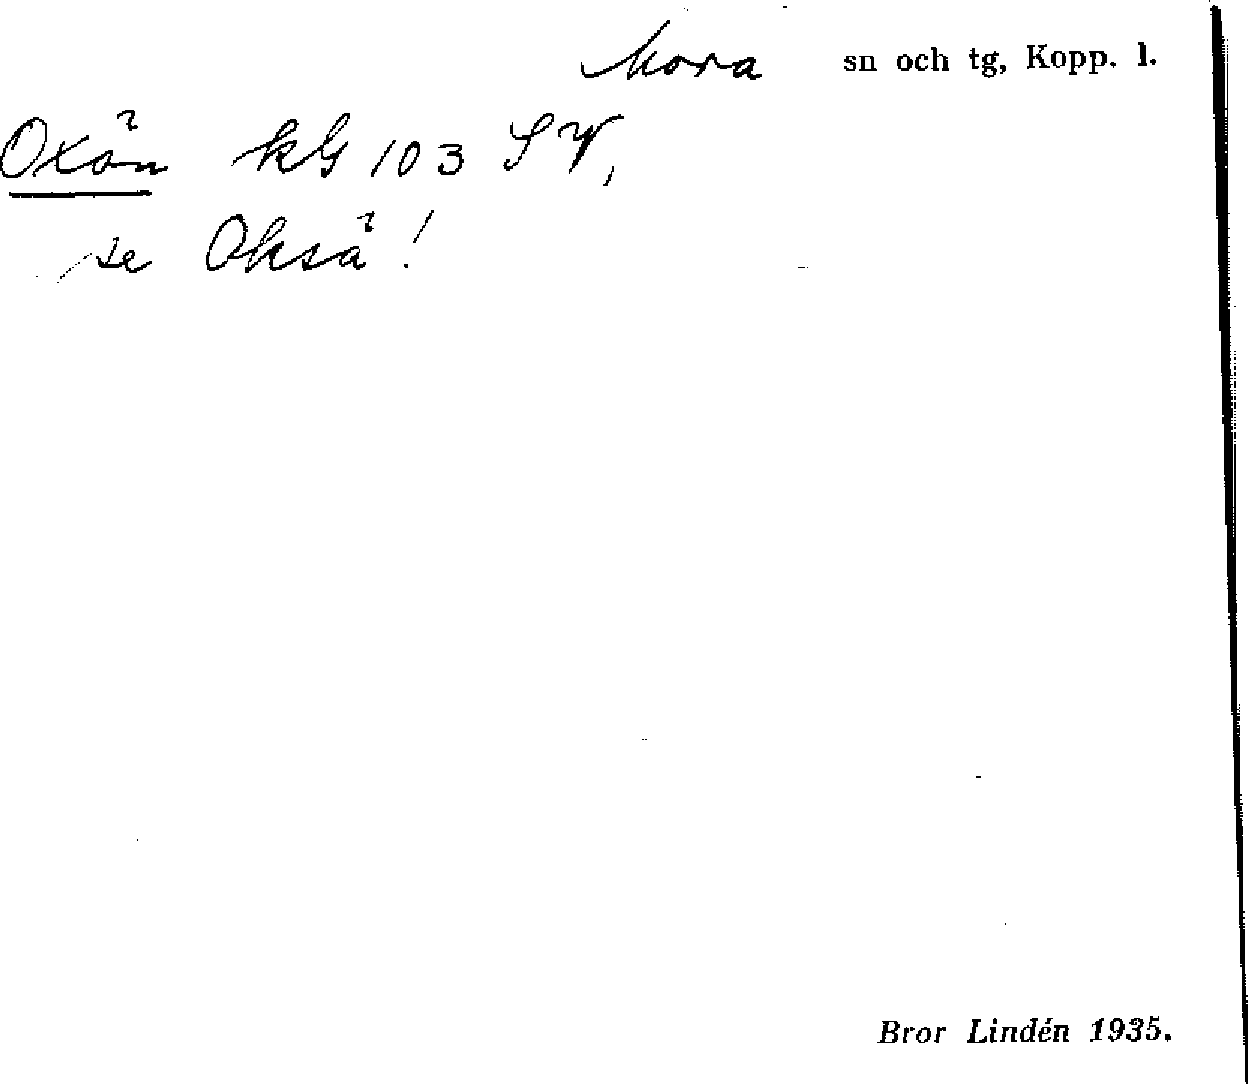 Mora sn och tg, Kopp. l.
Oxån kG 103 SV,
se Okså!
Bror Lindén 1935.